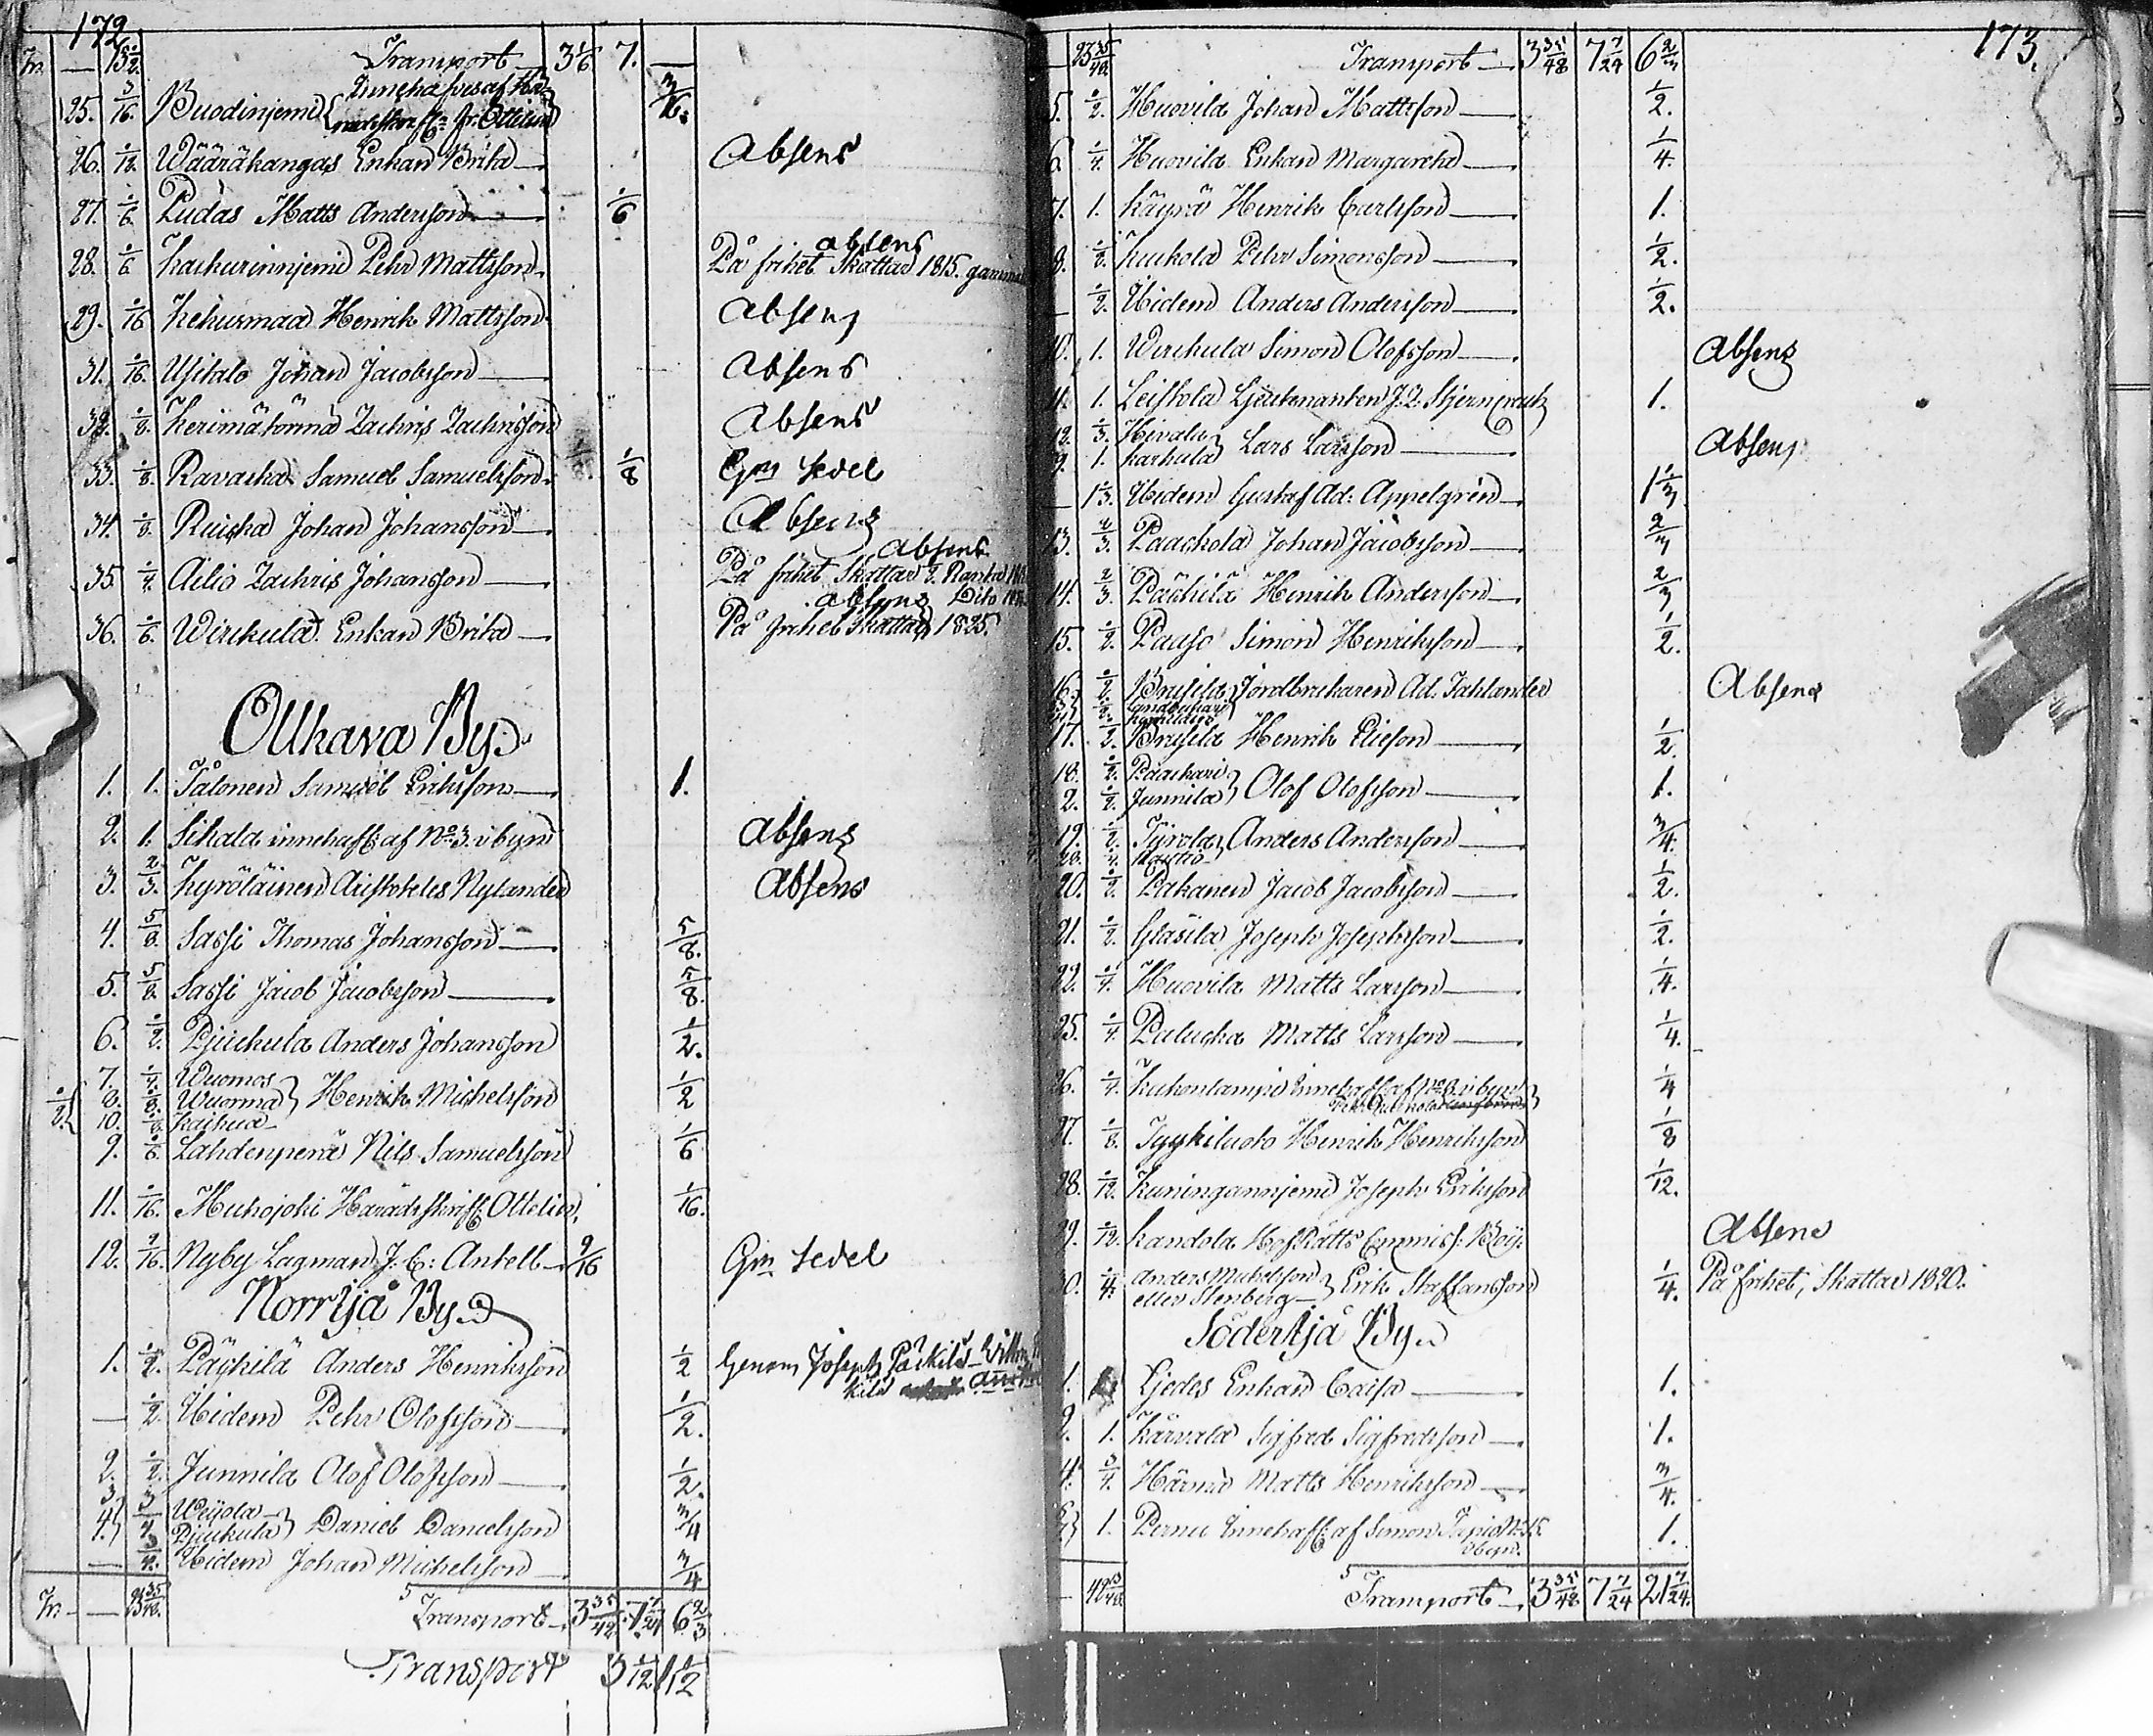 172
Tr. — Transport 3 1/6 7. —
25. 3/16. Buodinjemi Innehafves af Hä-
radsskrif. Fr. Ottelin 3/16.
26. 1/12. Wääräkangas Enkan Brita — Absens
27. 1/6. Pudas Matts Andersson — 1/6
absens
28. 1/6 Kaikurinnjemi Pehr Mattsson. På frihet Skattar 1815.
29. 1/16 Kehusmaa Henrik Mattsson. Absens
31. 1/16. Ylitalo Johan Jacobsson — Absens
32. 1/8. Kerimäkörma Zachris Zachrisson Absens
33. 1/8. Ravaska Samuel Samuelsson. 1/8 Gm sedel
34. 1/8. Ruiska Johan Johansson — Absens
Absens
35. 1/4. Ailio Zachris Johansson — På frihet Skattar
absens Dito
36. 1/6. Wirckula Enkan Brita — På frihet Skattar 1825.
Olhava By.
1. 1. Tålonen Samuel Eriksson — 1.
2. 1. Sihala innehaff. af No 3. i byn Absens
3. 2/3. Kyröläinen Aristoteles Nylander Absens
4. 5/8. Sassi Thomas Johansson — 5/8.
5. 5/8. Sassi Jacob Jacobsson — 5/8.
6. 1/2. Pjuckula Anders Johansson 1/2.
7. 1/4. Wuomos
8. 1/8. Wuorma } Henrik Michelsson 1/2
10. 1/8. Kaihua
9. 1/6. Lahdenperä Nils Samuelsson 1/6
11. 1/16. Muhojoki Häradsskrif. Ottelin. 1/16.
12. 9/16. Nyby Lagman J. C: Antell — 9/16 Gm sedel
Norrijå By.
1. 1/2. Päckilä Anders Henriksson 1/2 Genom Joseph Päckilä
— 1/2. Ibidem Pehr Olofsson — 1/2.
2. 1/2. Junnila Olof Olofsson — 1/2.
3. 3/4 Weijola
4. Pjuckula } Daniel Danielsson 3/4
— 3/4. Ibidem Johan Michelsson — 3/4
Tr. — 23 35/48. Transport — 3 35/48 7 7/24 6 2/3
Transport 3 1/12
173.
23 35/48. Transport — 3 35/48 7 7/24 6 2/3
5. 1/2. Huovila Johan Mattsson — 1/2.
6. 1/4. Huovila Enkan Margaretha — 1/4.
7. 1. Käyrä Henrik Carlsson — 1.
8. 1/2. Kuckola Pehr Simonsson — 1/2.
— 1/2. Ibidem Anders Andersson — 1/2.
10. 1. Wirckula Simon Olofsson — Absens
11. 1. Leiskola Lieutenanten J. Q. Stjerncreutz 1.
12. 1/3. Hivala
9. 1. Karhula } Lars Larsson — Absens
— 1 1/3. Ibidem Gustaf Ad: Appelgrén — 1 1/3
13. 2/3. Paackola Johan Jacobsson — 2/3
14. 2/3. Päckilä Henrik Andersson — 2/3
15. 1/2. Pauso Simon Henriksson — 1/2.
16. 1/2. Brusila Jordbrukaren Ad. Tahlander Absens
17. 1/2. Brusila Henrik Elieson — 1/2.
18. 1/2. Paackari
2. 1/2. Junnila } Olof Olofsson — 1.
19. 1/2. Tyrola Anders Andersson — 3/4.
20. 1/2. Pakanen Jacob Jacobsson — 1/2.
21. 1/2. Gläsilä Joseph Josephsson — 1/2.
22. 1/4. Huovila Matts Larsson — 1/4.
25. 1/4. Palucka Matts Larsson — 1/4.
26. 1/4. Kukonlampi Innehaff. af No 8. i byn 1/4
27. 1/8. Tyykiluoto Henrik Henriksson 1/8
28. 1/12. Kuningannjemi Joseph Eriksson 1/12.
29. 1/12. Kandola HofRätts Commiss: Roij. Absens
30. 1/4. Anders Michelsson
eller Stenberg } Erik Staffansson 1/4. På frihet, Skattar 1820.
Söderijå By.
1. Ljedes Enkan Caisa — 1.
2. 1. Kärnälä Sigfred Sigfredsson — 1.
4. 3/4. Härmä Matts Henriksson — 3/4.
1. Pernu Innehaff. af Simon Tapio No 15.
i byn. 1.
Transport — 3 35/48 7 7/24 21 7/24.